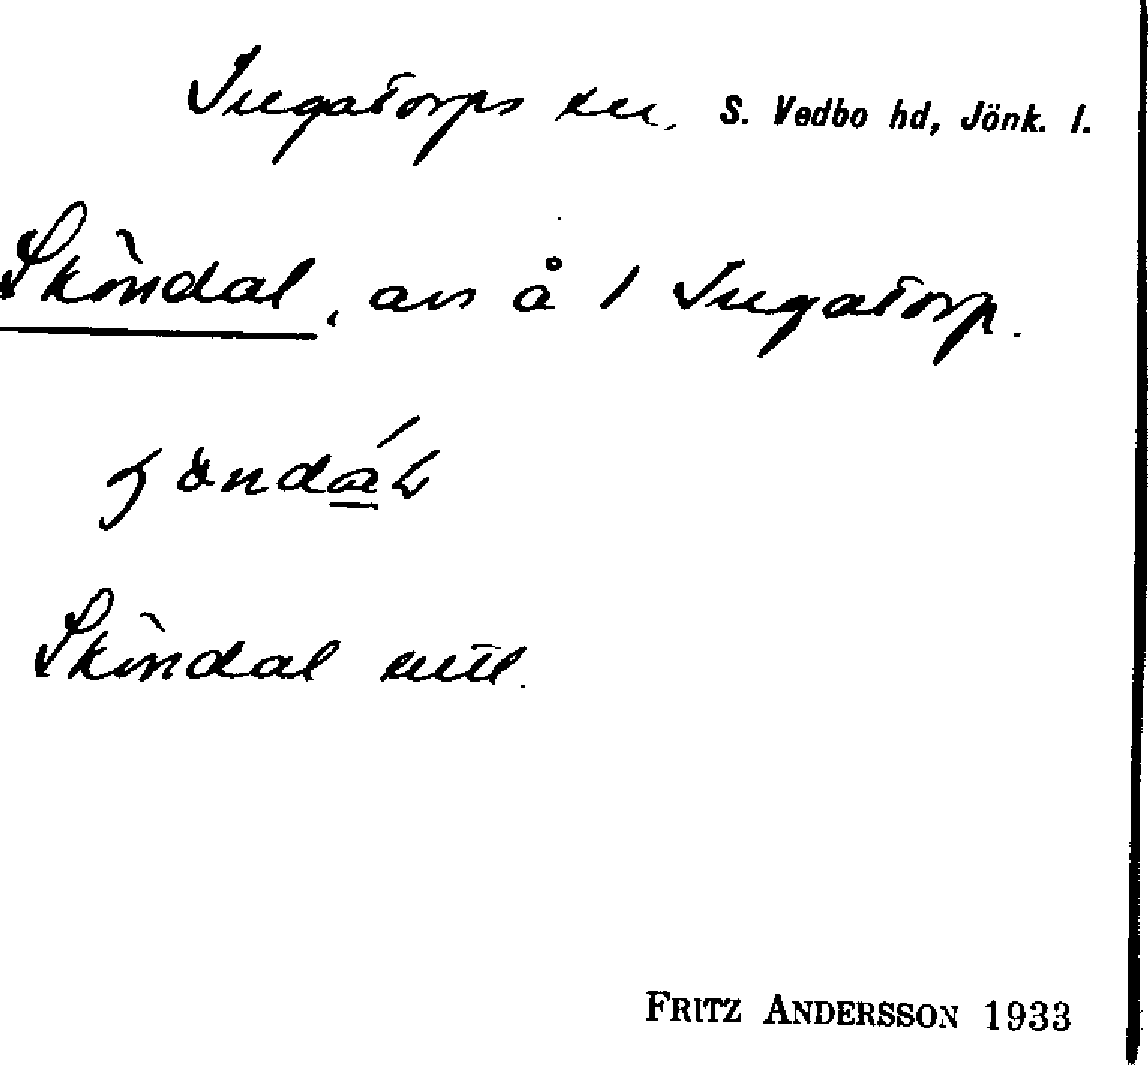 Ingatorps sn. S. Vedbo hd, Jönk. l.
Sköndal, avs å 1 Ingatorp.
Sköndal
FRITZ ANDERSSON 1933